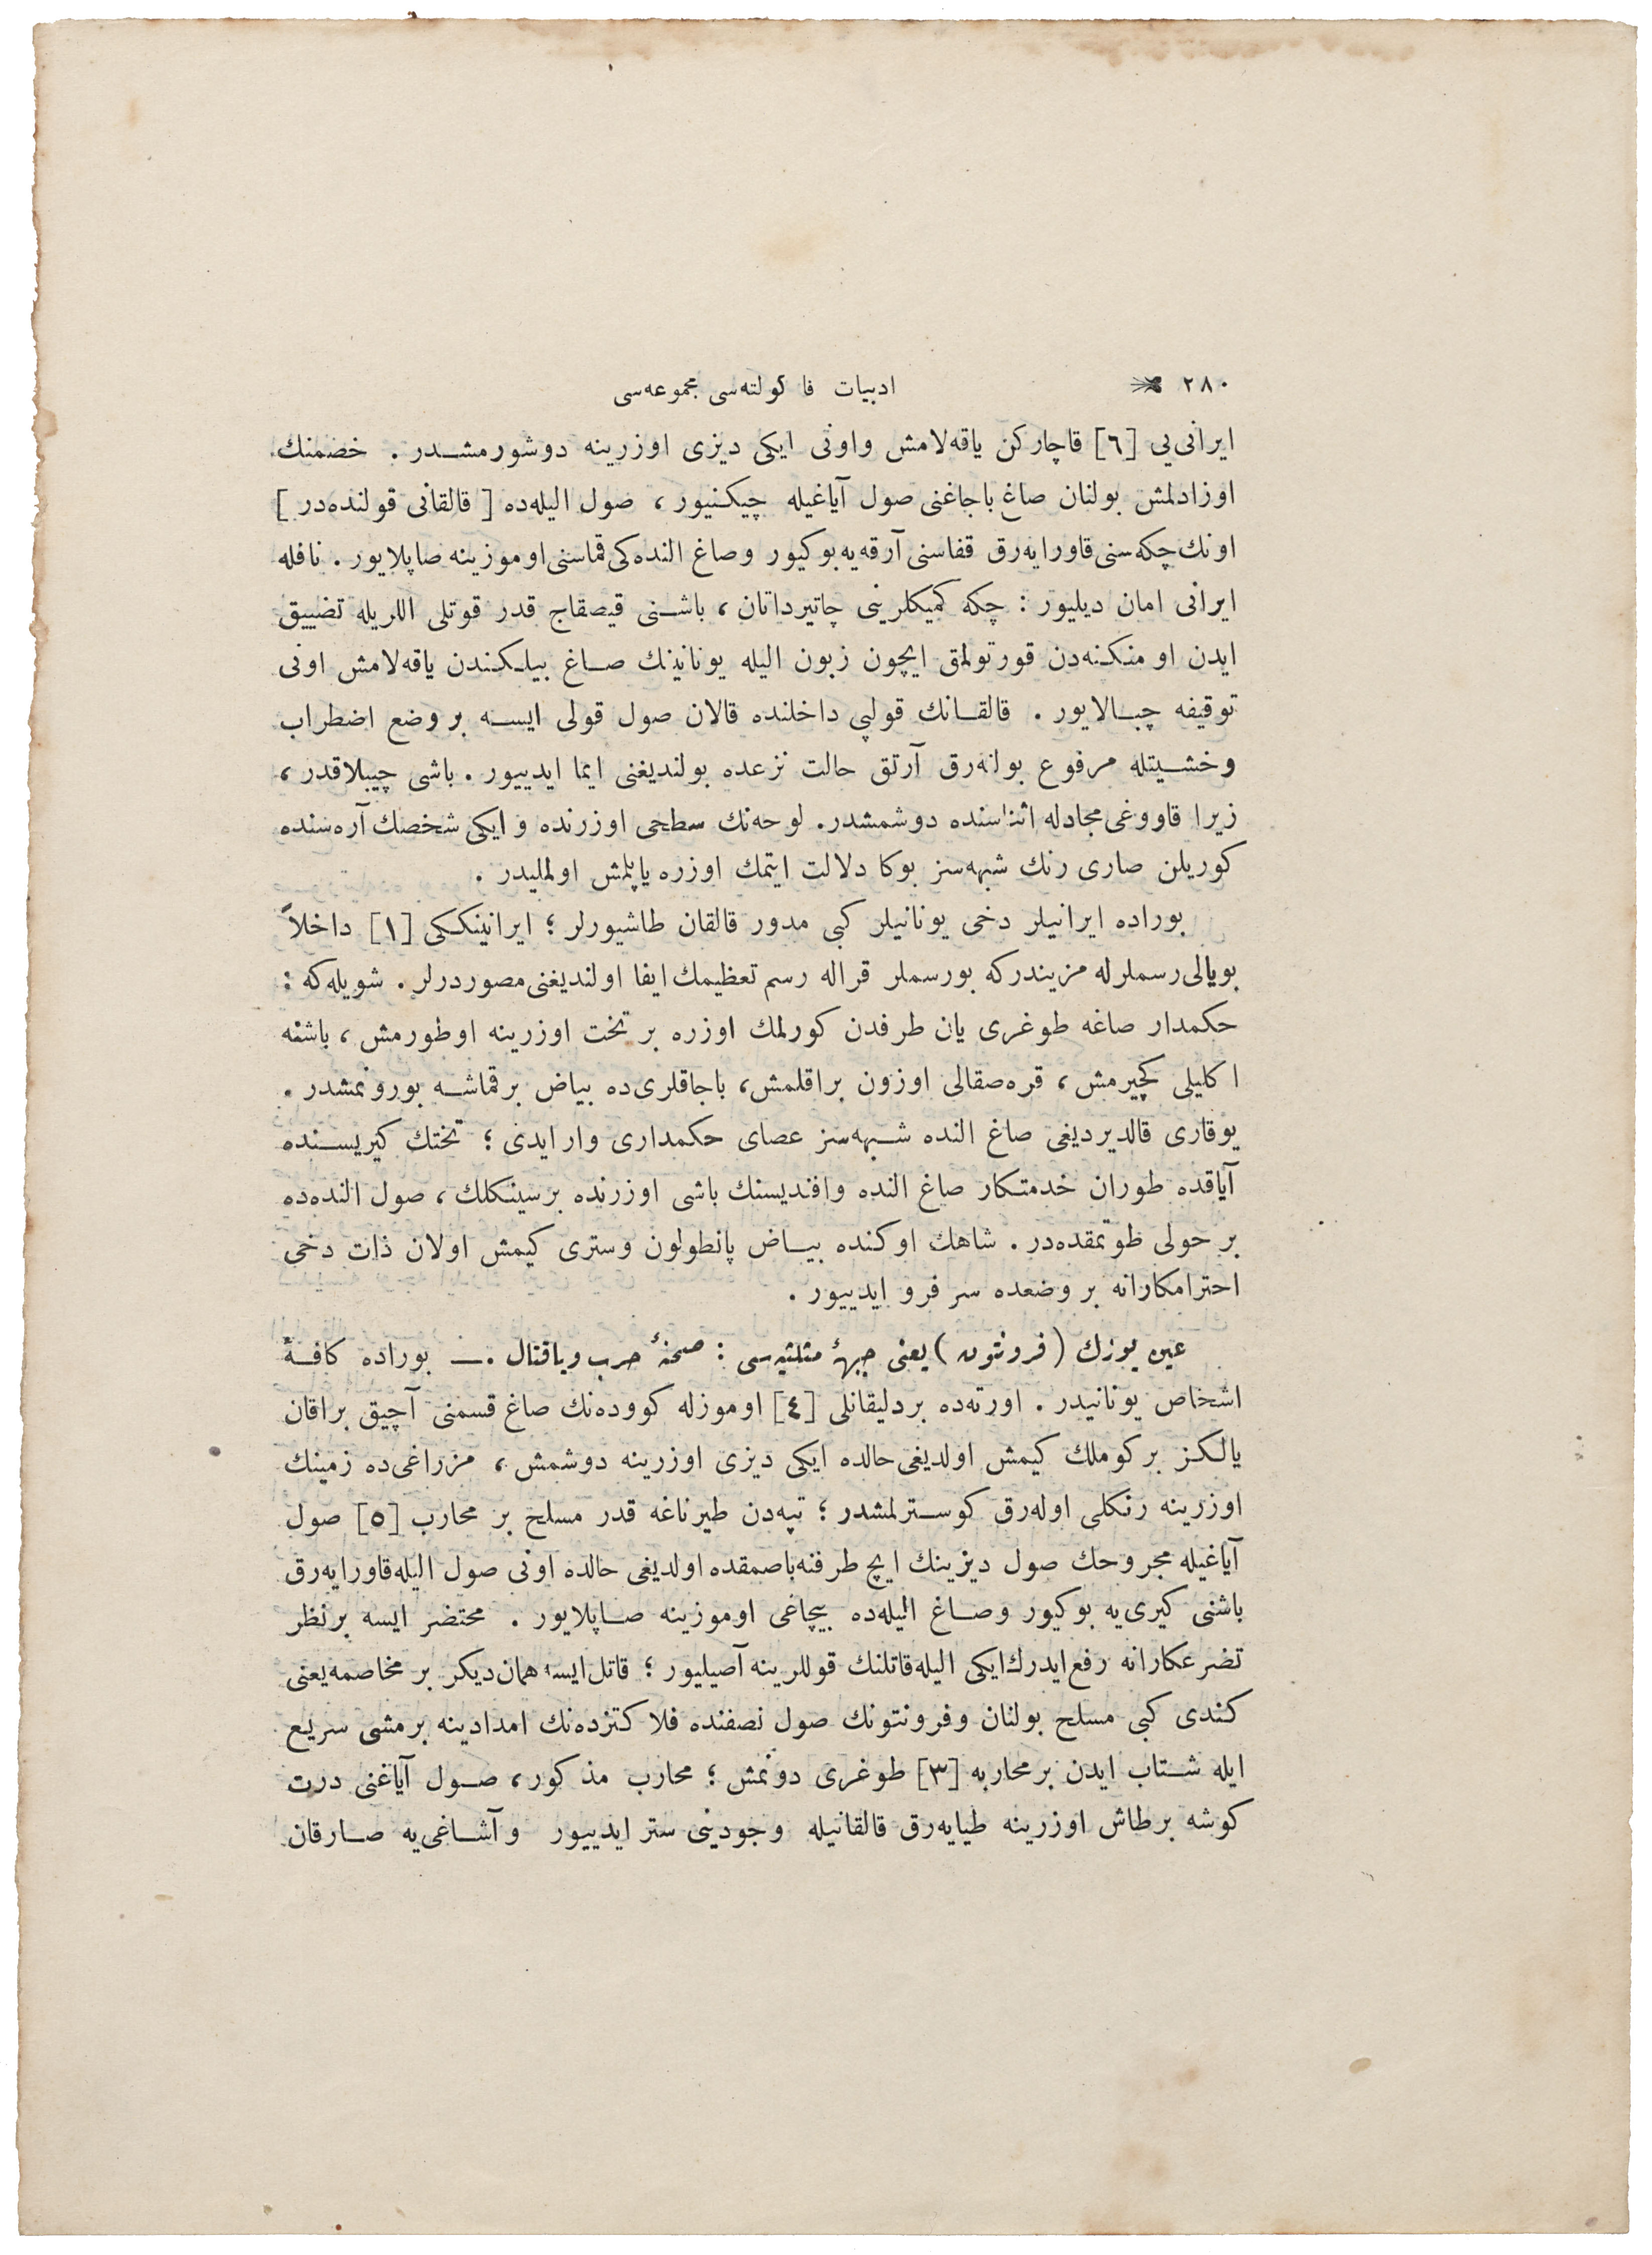 ٢٨٠ ادبيات فا كولته‌سی مجموعه‌سی
ايرانی‌يی [٦] قاچاركن ياقه‌لامش واونی ايكی ديزی اوزرينه دوشورمشدر . خصمنك
اوزادلمش بولنان صاغ باجاغنی صول آياغيله چيكنيور ، صول اليله‌ده [ قالقانی قولنده‌در ]
اونك چكه‌سنی قاورايه‌رق قفاسنی آرقه‌يه بوكيور وصاغ النده‌كی قماسنی اوموزينه صاپلايور . نافله
ايرانی امان ديليور : چكه كميكلرينی چاتيرداتان ، باشنی قيصقاج قدر قوتلی اللريله تضييق
ايدن او منكنه‌دن قورتولمق ايچون زبون اليله يونانينك صاغ بيلكندن ياقه‌لامش اونی
توقيفه چبالايور . قالقانك قولپی داخلنده قالان صول قولی ايسه بر وضع اضطراب
وخشيتله مرفوع بولنه‌رق آرتق حالت نزعده بولنديغنی ايما ايدييور . باشی چيپلاقدر ،
زيرا قاووغی مجادله اثناسنده دوشمشدر. لوحه‌نك سطحی اوزرنده و ايكی شخصك آره‌سنده
كوريلن صاری رنك شبهه‌سز بوكا دلالت ايتمك اوزره ياپلمش اولمليدر .
بوراده ايرانيلر دخی يونانيلر كبی مدور قالقان طاشيورلر ؛ ايرانينككی [١] داخلاً
بويالی رسملرله مزيندركه بورسملر قراله رسم تعظيمك ايفا اولنديغنی مصوردرلر . شويله‌كه :
حكمدار صاغه طوغری يان طرفدن كورلمك اوزره بر تخت اوزرينه اوطورمش ، باشنه
اكليلی كچيرمش ، قره‌صقالی اوزون براقلمش، باجاقلری‌ده بياض برقماشه بورونمشدر .
يوقاری قالديرديغی صاغ النده شبهه‌سز عصای حكمداری وار ايدی ؛ تختك كيريسنده
آياقده طوران خدمتكار صاغ النده وافنديسنك باشی اوزرنده برسينكلك ، صول النده‌ده
بر حولی طوتمقده‌در . شاهك اوكنده بياض پانطولون وستری كيمش اولان ذات دخی
احترامكارانه بر وضعده سر فرو ايدييور .
عين يوزك ( فرونتون ) يعنی جبههٔ مثلثيه‌سی : صحنهٔ حرب وياقتال . — بوراده كافةً
اشخاص يونانيدر . اورته‌ده بردليقانلی [٤] اوموزله كووده‌نك صاغ قسمنی آچيق براقان
يالكز بر كوملك كيمش اولديغی حالده ايكی ديزی اوزرينه دوشمش ، مزراغی‌ده زمينك
اوزرينه رنكلی اوله‌رق كوسترلمشدر ؛ تپه‌دن طيرناغه قدر مسلح بر محارب [٥] صول
آياغيله مجروحك صول ديزينك ايچ طرفنه باصمقده اولديغی حالده اونی صول اليله قاورايه‌رق
باشنی كيری‌يه بوكيور وصاغ اليله‌ده بيچاغی اوموزينه صاپلايور . محتضر ايسه برنظر
تضرعكارانه رفع ايدرك ايكی اليله قاتلنك قوللرينه آصيليور ؛ قاتل ايسه همان ديكر بر مخاصمه يعنی
كندی كبی مسلح بولنان وفرونتونك صول نصفنده فلاكتزده‌نك امدادينه برمشی سريع
ايله شتاب ايدن برمحاربه [٣] طوغری دونمش ؛ محارب مذكور، صول آياغنی درت
كوشه برطاش اوزرينه طيايه‌رق قالقانيله وجودينی ستر ايدييور وآشاغی‌يه صارقان